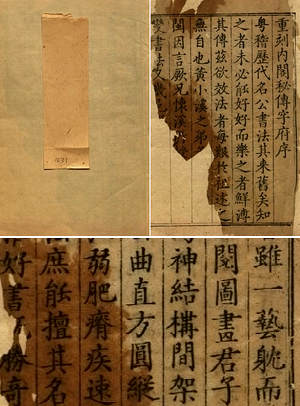 重刻內閣秘傳字府序
粵稽歷代名公書法其來舊矣知
之者未必能好好而樂之者鮮溥
其傳茲欲效法者每艱於祖述之
無自也黃小溪之弟
閩因言厥兄懷溪於
書法
雖一藝躭而
閱圖畫君子
神結構間架
曲直方圓縱
弱肥瘠疾速
庶能擅其名
好書勝奇